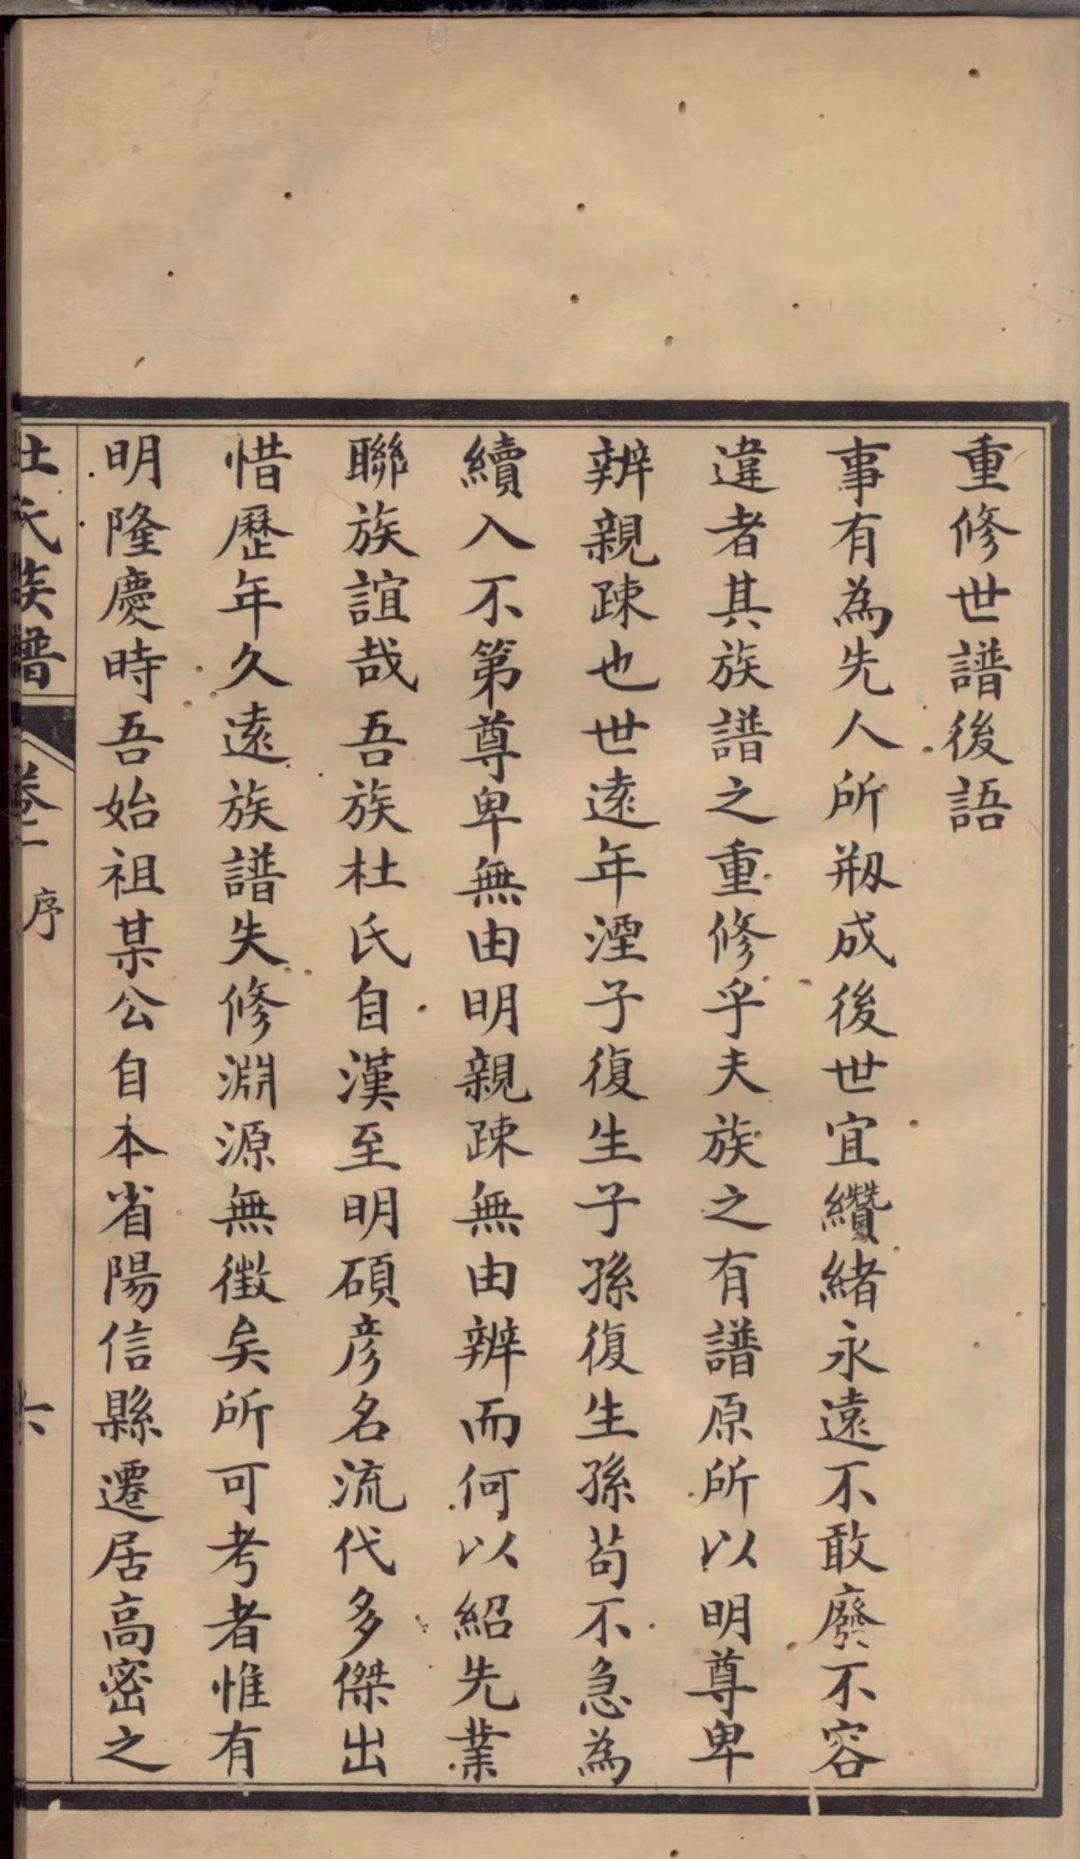 重修世譜後語
事有為先人所剏成後世宜纘緒永遠不敢廢不容
違者其族譜之重修乎夫族之有譜原所以明尊卑
辨親疎也世遠年湮子復生子孫復生孫苟不急為
續入不第尊卑無由明親疎無由辨而何以紹先業
聯族誼哉吾族杜氏自漢至明碩彦名流代多傑出
惜歷年久遠族譜失修淵源無徵矣所可考者惟有
明隆慶時吾始祖某公自本省陽信縣遷居高密之
杜氏族譜
序
六